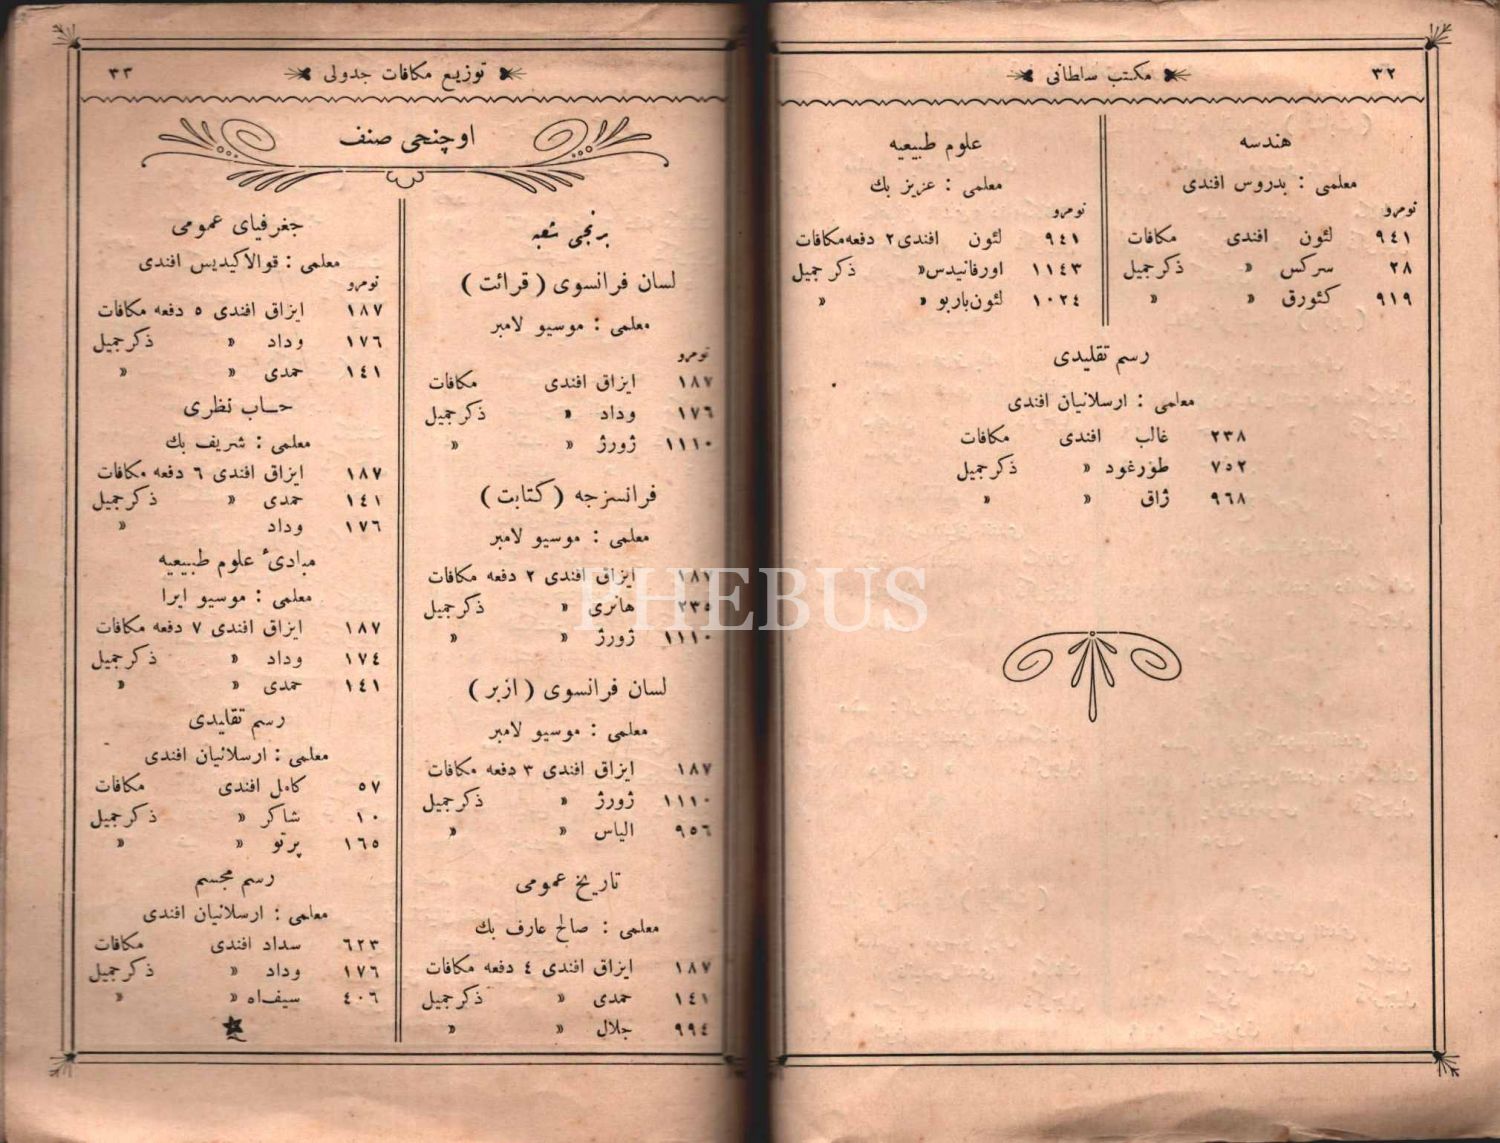 ٣٢
مكتب سلطانی
هندسه
معلمی : بدروس افندی
نومرو
٩٤١ لئون افندی مكافات
٢٨ سركس « ذكرجميل
٩١٩ كئورق « «
علوم طبيعيه
معلمی : عزيز بك
نومرو
٩٤١ لئون افندی ٢ دفعه مكافات
١١٤٣ اورفانيدس « ذكرجميل
١٠٢٤ لئون باربو « «
رسم تقليدی
معلمی : ارسلانيان افندی
٢٣٨ غالب افندی مكافات
٧٥٢ طورغود « ذكرجميل
٩٦٨ ژاق « «
توزيع مكافات جدولی
٣٣
اوچنجی صنف
برنجی شعبه
لسان فرانسوی ( قرائت )
معلمی : موسيو لامبر
نومرو
١٨٧ ايزاق افندی مكافات
١٧٦ وداد « ذكرجميل
١١١٠ ژورژ « «
فرانسزجه ( كتابت )
معلمی : موسيو لامبر
١٨٧ ايزاق افندی ٢ دفعه مكافات
٢٣٥ هانری « ذكرجميل
١١١٠ ژورژ « «
لسان فرانسوی ( ازبر )
معلمی : موسيو لامبر
١٨٧ ايزاق افندی ٣ دفعه مكافات
١١١٠ ژورژ « ذكرجميل
٩٥٦ الياس « «
تاريخ عمومی
معلمی : صالح عارف بك
١٨٧ ايزاق افندی ٤ دفعه مكافات
١٤١ حمدی « ذكرجميل
٩٩٤ جلال « «
جغرفيای عمومی
معلمی : قوالاكيديس افندی
نومرو
١٨٧ ايزاق افندی ٥ دفعه مكافات
١٧٦ وداد « ذكرجميل
١٤١ حمدی « «
حساب نظری
معلمی : شريف بك
١٨٧ ايزاق افندی ٦ دفعه مكافات
١٤١ حمدی « ذكرجميل
١٧٦ وداد «
مبادئ علوم طبيعيه
معلمی : موسيو ايرا
١٨٧ ايزاق افندی ٧ دفعه مكافات
١٧٤ وداد « ذكرجميل
١٤١ حمدی « «
رسم تقليدی
معلمی : ارسلانيان افندی
٥٧ كامل افندی مكافات
١٠ شاكر « ذكرجميل
١٦٥ پرتو « «
رسم مجسم
معلمی : ارسلانيان افندی
٦٢٣ سداد افندی مكافات
١٧٦ وداد « ذكرجميل
٤٠٦ سيف‌اه « «
PHEBUS